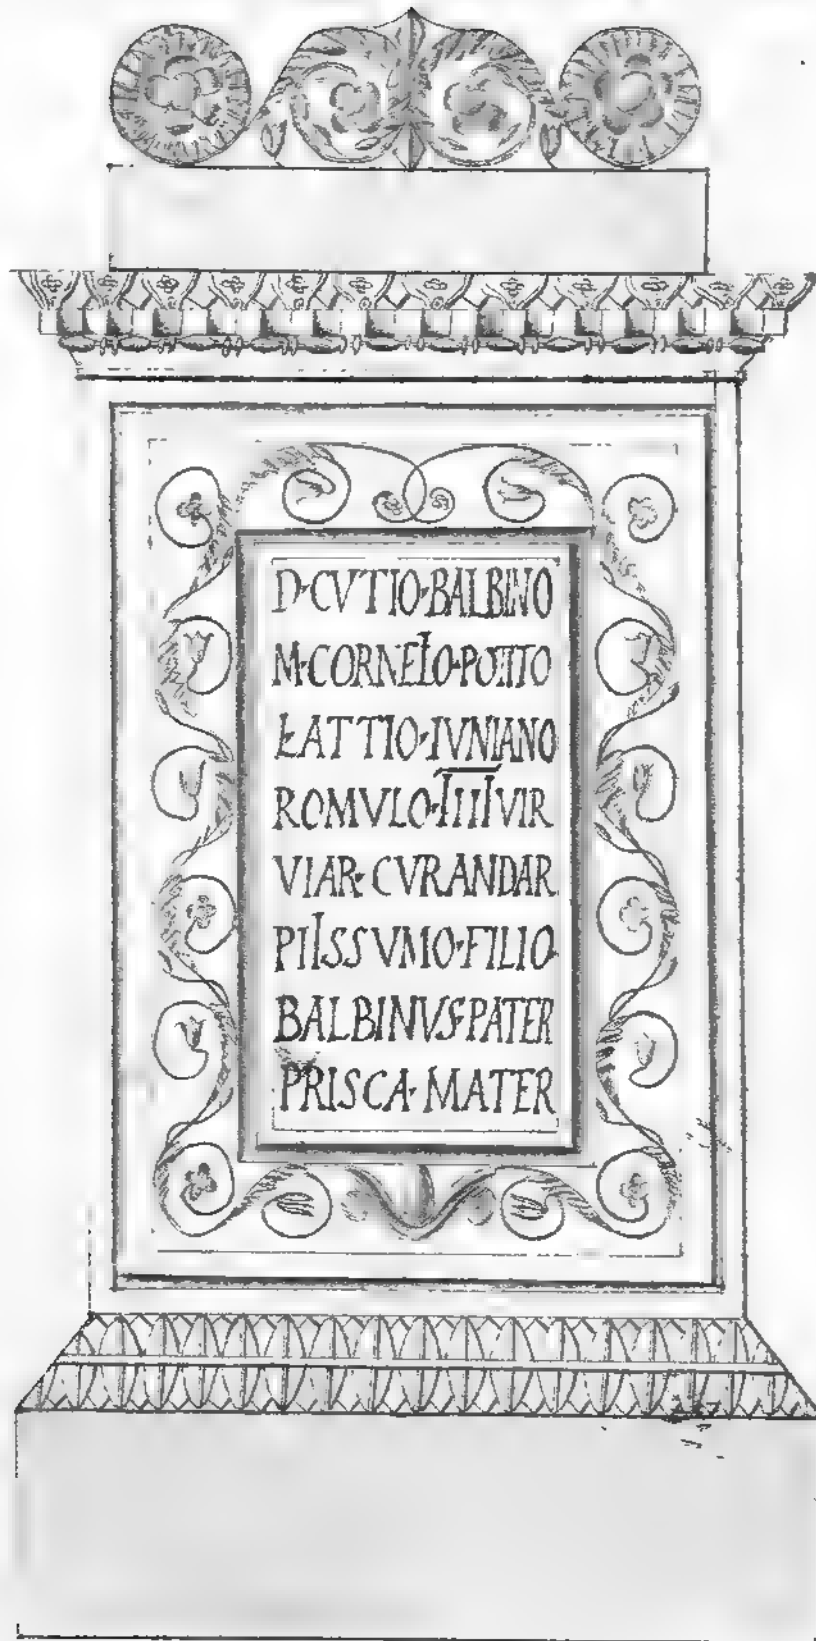 D·CVTIO·BALBINO
M·CORNELIO·POTITO
L·ATTIO·IVNIANO
ROMVLO·IIIIVIR
VIAR·CVRANDAR
PIISSVMO·FILIO
BALBINVS·PATER
PRISCA·MATER